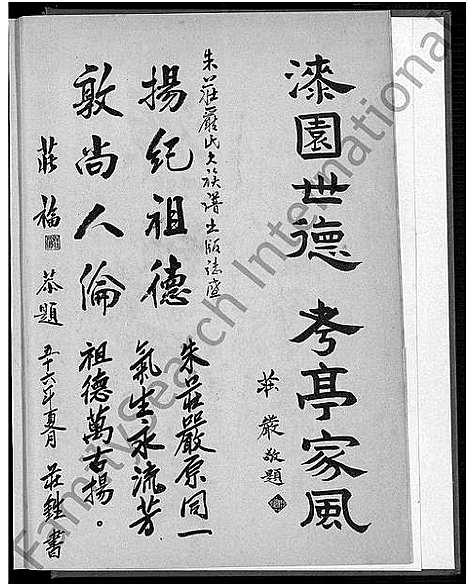 漆園世德 考亭家風
莊嚴敬題
朱莊嚴氏大族譜出版誌慶
揚紀祖德
敦尚人倫
莊福 恭題
朱莊嚴原同一
氣生永流芳
祖德萬古揚。
五十六年夏月 莊 書
FamilySearch International